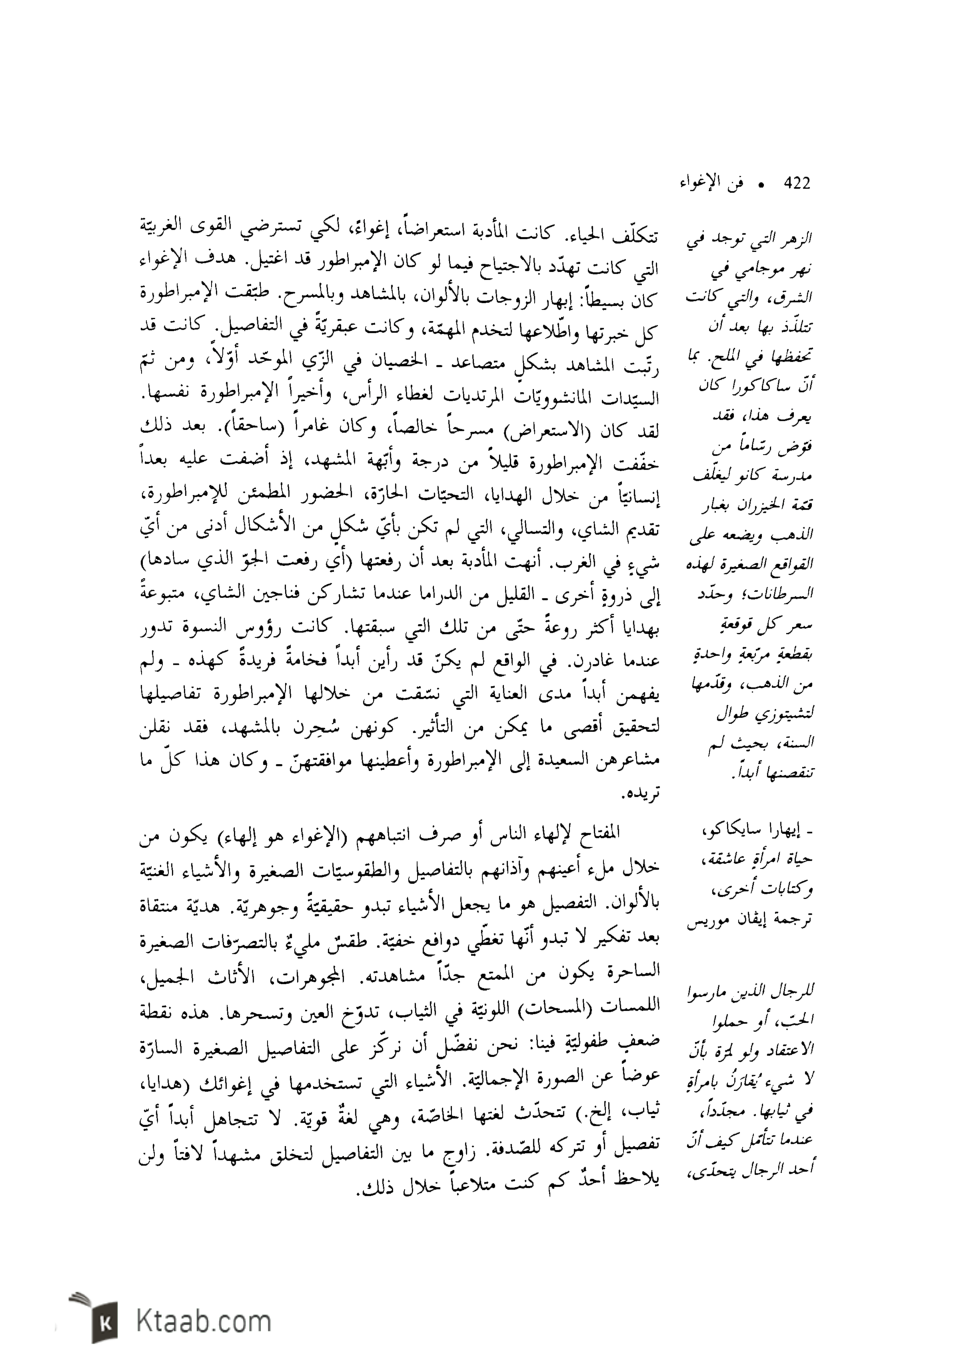 422 • فن الإغواء
تتكلّف الحياء. كانت المأدبة استعراضاً، إغواءً، لكي تسترضي القوى الغربيّة
التي كانت تهدّد بالاجتياح فيما لو كان الإمبراطور قد اغتيل. هدف الإغواء
كان بسيطاً: إبهار الزوجات بالألوان، بالمشاهد وبالمسرح. طبّقت الإمبراطورة
كل خبرتها واطّلاعها لتخدم المهمّة، وكانت عبقريّةً في التفاصيل. كانت قد
رتّبت المشاهد بشكلٍ متصاعد ـ الخصيان في الزّي الموحّد أوّلاً، ومن ثمّ
السيّدات المانشوويّات المرتديات لغطاء الرأس، وأخيراً الإمبراطورة نفسها.
لقد كان (الاستعراض) مسرحاً خالصاً، وكان غامراً (ساحقاً). بعد ذلك
خفّفت الإمبراطورة قليلاً من درجة وأبّهة المشهد، إذ أضفت عليه بعداً
إنسانيّاً من خلال الهدايا، التحيّات الحارّة، الحضور المطمئن للإمبراطورة،
تقديم الشاي، والتسالي، التي لم تكن بأيّ شكلٍ من الأشكال أدنى من أيّ
شيءٍ في الغرب. أنهت المأدبة بعد أن رفعتها (أي رفعت الجوّ الذي سادها)
إلى ذروةٍ أخرى ـ القليل من الدراما عندما تشاركن فناجين الشاي، متبوعةً
بهدايا أكثر روعةً حتّى من تلك التي سبقتها. كانت رؤوس النسوة تدور
عندما غادرن. في الواقع لم يكنّ قد رأين أبداً فخامةً فريدةً كهذه ـ ولم
يفهمن أبداً مدى العناية التي نسّقت من خلالها الإمبراطورة تفاصيلها
لتحقيق أقصى ما يمكن من التأثير. كونهن سُحرن بالمشهد، فقد نقلن
مشاعرهن السعيدة إلى الإمبراطورة وأعطينها موافقتهنّ ـ وكان هذا كلّ ما
تريده.
المفتاح لإلهاء الناس أو صرف انتباههم (الإغواء هو إلهاء) يكون من
خلال ملء أعينهم وآذانهم بالتفاصيل والطقوسيّات الصغيرة والأشياء الغنيّة
بالألوان. التفصيل هو ما يجعل الأشياء تبدو حقيقيّةً وجوهريّة. هديّة منتقاة
بعد تفكير لا تبدو أنّها تغطّي دوافع خفيّة. طقسٌ مليءٌ بالتصرّفات الصغيرة
الساحرة يكون من الممتع جدّاً مشاهدته. المجوهرات، الأثاث الجميل،
اللمسات (المسحات) اللونيّة في الثياب، تدوّخ العين وتسحرها. هذه نقطة
ضعفٍ طفوليّةٍ فينا: نحن نفضّل أن نركّز على التفاصيل الصغيرة السارّة
عوضاً عن الصورة الإجماليّة. الأشياء التي تستخدمها في إغوائك (هدايا،
ثياب، إلخ.) تتحدّث لغتها الخاصّة، وهي لغةٌ قويّة. لا تتجاهل أبداً أيّ
تفصيل أو تتركه للصّدفة. زاوج ما بين التفاصيل لتخلق مشهداً لافتاً ولن
يلاحظ أحدٌ كم كنت متلاعباً خلال ذلك.
الزهر التي توجد في
نهر موجامي في
الشرق، والتي كانت
تتلذّذ بها بعد أن
تحفظها في الملح. بما
أنّ ساكاكورا كان
يعرف هذا، فقد
فوّض رسّاماً من
مدرسة كانو ليغلّف
قمّة الخيزران بغبار
الذهب ويضعه على
القواقع الصغيرة لهذه
السرطانات؛ وحدّد
سعر كل قوقعةٍ
بقطعةٍ مربّعةٍ واحدةٍ
من الذهب، وقدّمها
لتشيتوزي طوال
السنة، بحيث لم
تنقصنها أبداً.
ـ إيهارا سايكاكو،
حياة امرأةٍ عاشقة،
وكتابات أخرى،
ترجمة إيڤان موريس
للرجال الذين مارسوا
الحبّ، أو حملوا
الاعتقاد ولو لمرّة بأنّ
لا شيء يُقارَنُ بامرأةٍ
في ثيابها. مجدّداً،
عندما تتأمّل كيف أنّ
أحد الرجال يتحدّى،
Ktaab.com